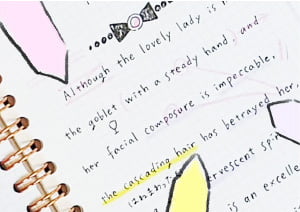 Although the lovely lady is h
the goblet with a steady hand, and
her facial composure is impeccable.
the cascading hair has betrayed her,
ervescent spir
is an excelle